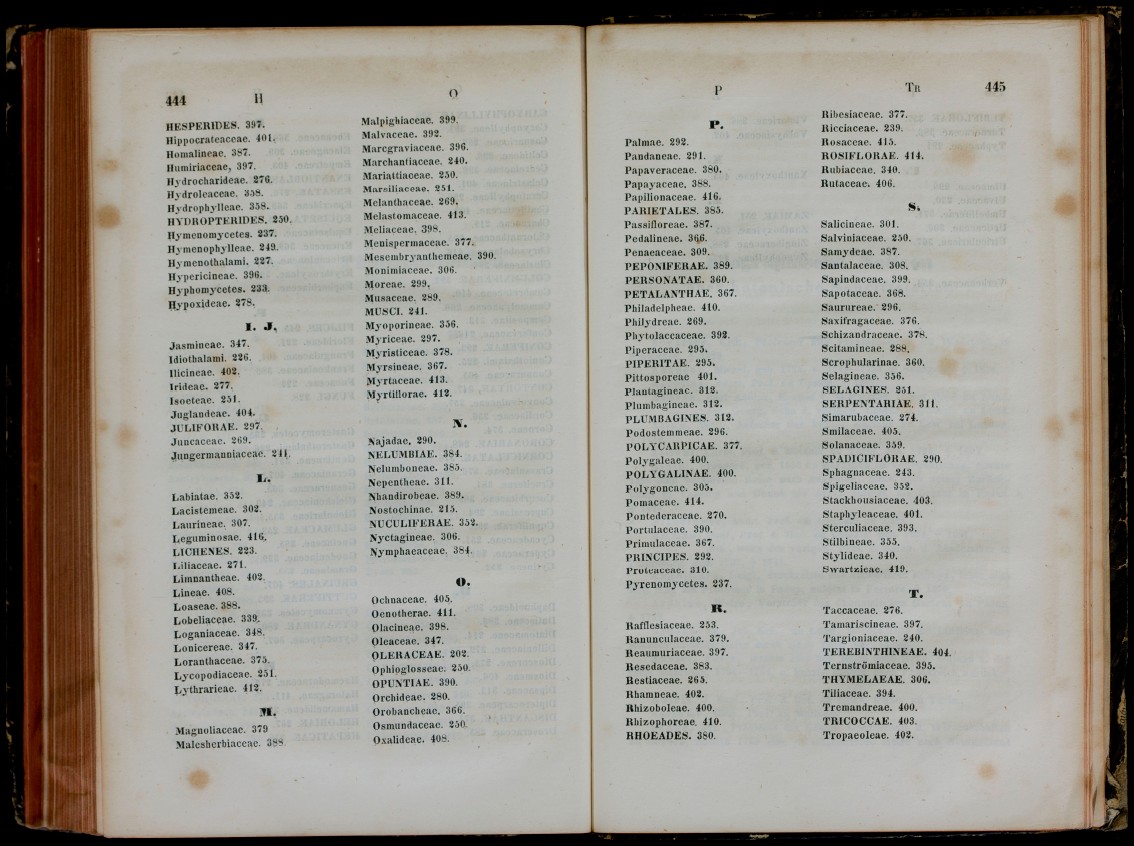 444 H O
HESPERIDES. 397.
Hippocrateaceae. 401.
Homalineae. 387.
Humiriaceae, 397.
Hydrocharideae. 276.
Hydroleaceae. 358.
Hydrophylleae. 358.
HYDROPTERIDES. 250.
Hymenomycetes. 237.
Hymenophylleae. 249.
Hymenothalami. 227.
Hypericineae. 396.
Hyphomycetes. 233.
Hypoxideae. 278.
I. J.
Jasmineae. 347.
Idiothalami. 226.
Ilicineae. 402.
Irideae. 277.
Isoeteae. 251.
Juglandeae. 404.
JULIFORAE. 297.
Juncaceae. 269.
Jungermanniaceae. 241.
L.
Labiatae. 352.
Lacistemeae. 302.
Laurineae. 307.
Leguminosae. 416.
LICHENES. 223.
Liliaceae. 271.
Limnantheae. 402.
Lineae. 408.
Loaseae. 388.
Lobeliaceae. 339.
Loganiaceae. 348.
Lonicereae. 347.
Loranthaceae. 375.
Lycopodiaceae. 251.
Lythrarieae. 412.
M.
Magnoliaceae. 379
Malesherbiaceae. 388
Malpighiaceae. 399.
Malvaceae. 392.
Marcgraviaceae. 396.
Marchantiaceae. 240.
Mariattiaceae. 250.
Marsiliaceae. 251.
Melanthaceae. 269.
Melastomaceae. 413.
Meliaceae. 398.
Menispermaceae. 377.
Mesembryanthemeae. 390.
Monimiaceae. 306.
Moreae. 299.
Musaceae. 289.
MUSCI. 241.
Myoporineae. 356.
Myriceae. 297.
Myristiceae. 378.
Myrsineae. 367.
Myrtaceae. 413.
Myrtiflorae. 412.
N.
Najadae. 290.
NELUMBIAE. 384.
Nelumboneae. 385.
Nepentheae. 311.
Nhandirobeae. 389.
Nostochinae. 215.
NUCULIFERAE. 352.
Nyctagineae. 306.
Nymphaeaceae. 384.
O.
Ochnaceae. 405.
Oenotherae. 411.
Olacineae. 398.
Oleaceae. 347.
OLERACEAE. 202.
Ophioglosseae. 250.
OPUNTIAE. 390.
Orchideae. 280.
Orobancheae. 366.
Osmundaceae. 250.
Oxalideae. 408.
P TR 445
P.
Palmae. 292.
Pandaneae. 291.
Papaveraceae. 380.
Papayaceae. 388.
Papilionaceae. 416.
PARIETALES. 385.
Passifloreae. 387.
Pedalineae. 366.
Penaeaceae. 309.
PEPONIFERAE. 389.
PERSONATAE. 360.
PETALANTHAE. 367.
Philadelpheae. 410.
Philydreae. 269.
Phytolaccaceae. 392.
Piperaceae. 295.
PIPERITAE. 295.
Pittosporeae 401.
Plantagineae. 312.
Plumbagineae. 312.
PLUMBAGINES. 312.
Podostemmeae. 296.
POLYCARPICAE. 377.
Polygaleae. 400.
POLYGALINAE. 400.
Polygoneae. 305.
Pomaceae. 414.
Pontederaceae. 270.
Portulaceae. 390.
Primulaceae. 367.
PRINCIPES. 292.
Proteaceae. 310.
Pyrenomycetes. 237.
R.
Rafflesiaceae. 253.
Ranunculaceae. 379.
Reaumuriaceae. 397.
Resedaceae. 383.
Restiaceae. 265.
Rhamneae. 402.
Rhizoboleae. 400.
Rhizophoreae. 410.
RHOEADES. 380.
Ribesiaceae. 377.
Ricciaceae. 239.
Rosaceae. 415.
ROSIFLORAE. 414.
Rubiaceae. 340.
Rutaceae. 406.
S.
Salicineae. 301.
Salviniaceae. 250.
Samydeae. 387.
Santalaceae. 308.
Sapindaceae. 399.
Sapotaceae. 368.
Saurureae. 296.
Saxifragaceae. 376.
Schizandraceae. 378.
Scitamineae. 288.
Scrophularinae. 360.
Selagineae. 356.
SELAGINES. 251.
SERPENTARIAE. 311.
Simarubaceae. 274.
Smilaceae. 405.
Solanaceae. 359.
SPADICIFLORAE. 290.
Sphagnaceae. 243.
Spigeliaceae. 352.
Stackhousiaceae. 403.
Staphyleaceae. 401.
Sterculiaceae. 393.
Stilbineae. 355.
Stylideae. 340.
Swartzieae. 419.
T.
Taccaceae. 276.
Tamariscineae. 397.
Targioniaceae. 240.
TEREBINTHINEAE. 404.
Ternströmiaceae. 395.
THYMELAEAE. 306.
Tiliaceae. 394.
Tremandreae. 400.
TRICOCCAE. 403.
Tropaeoleae. 402.